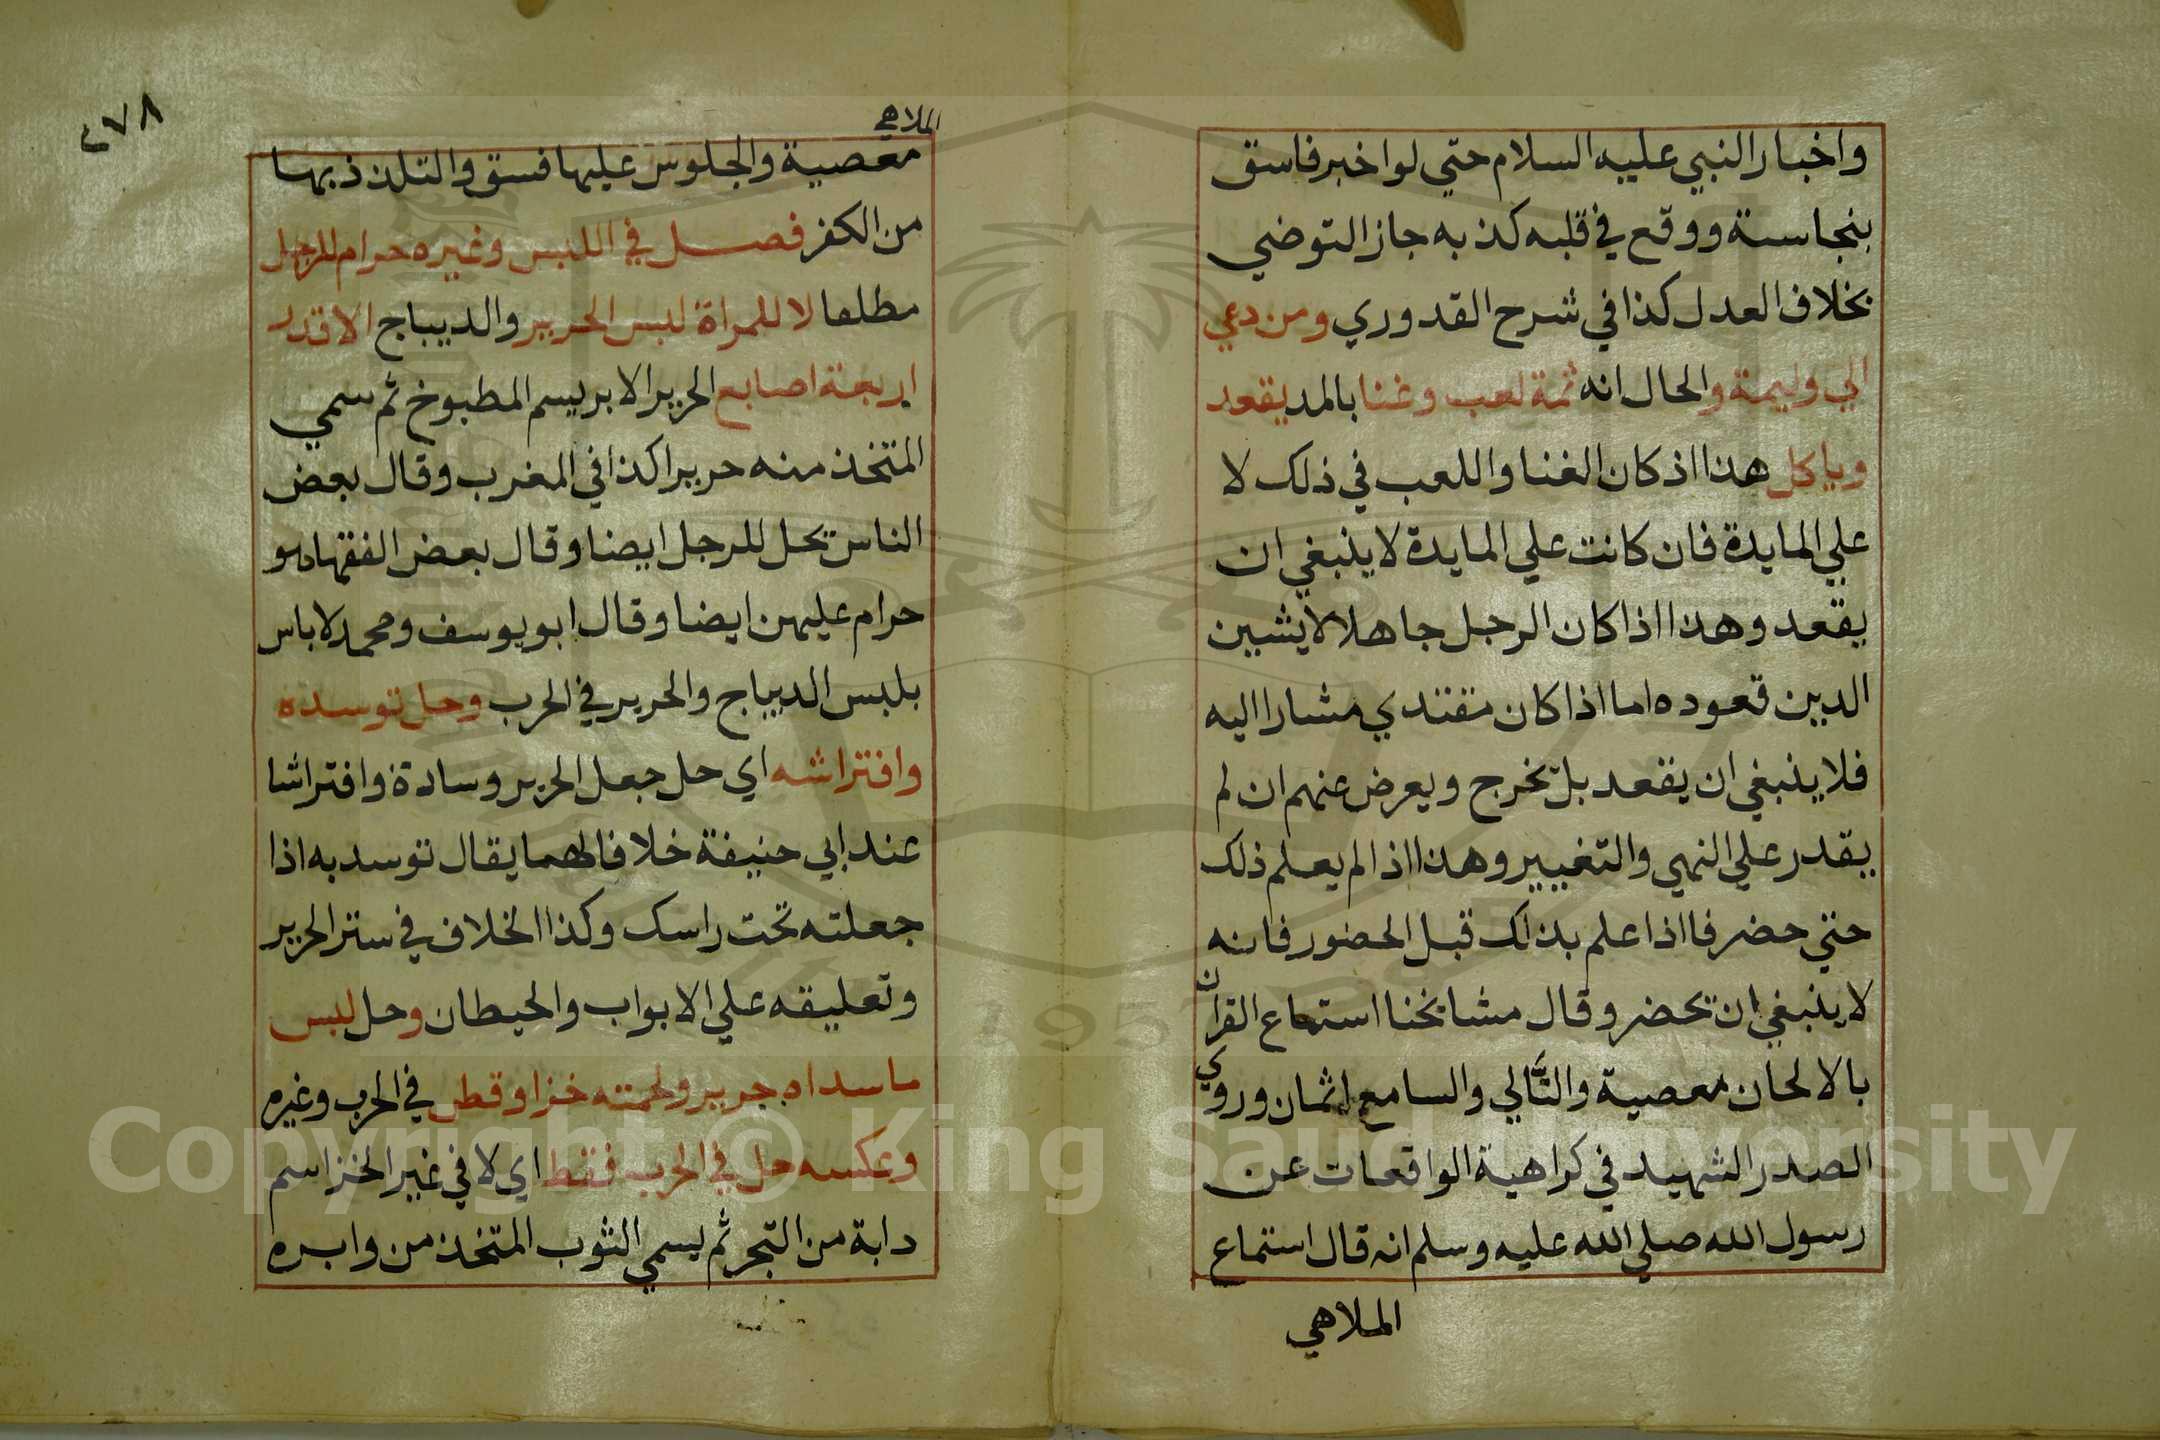 واخبار النبي عليه السلام حتي لو اخبر فاسق
بنجاسة ووقع في قلبه كذبه جاز التوضي
بخلاف العدل كذا في شرح القدوري ومن دعي
الي وليمة والحال انه ثمة لعب وغنا بالمد يقعد
وياكل هذا اذ كان الغنا واللعب في ذلك لا
علي المايدة فان كانت علي المايدة لا ينبغي ان
يقعد وهذا اذا كان الرجل جاهلا لا يشين
الدين قعوده اما اذا كان مقتدي مشارا اليه
فلا ينبغي ان يقعد بل يخرج ويعرض عنهم ان لم
يقدر علي النهي والتغيير وهذا اذا لم يعلم ذلك
حتي حضر فا اذا علم بذلك قبل الحضور فانه
لا ينبغي ان تحضر وقال مشايخنا استماع القران
بالالحان معصية والتَّالي والسامع اثمان وروي
الصدر الشهيد في كراهية الواقعات عن
رسول الله صلي الله عليه وسلم انه قال استماع
الملاهي
٤٧٨
الملاهي
معصية والجلوس عليها فسق والتلذذ بها
من الكفر فصل في اللبس وغيره حرام للرجل
مطلقا لا للمراة لبس الحرير والديباج الا قدر
اربعة اصابع الحرير الابريسم المطبوخ ثم سمي
المتخذ منه حريرا كذا في المغرب وقال بعض
الناس يحل للرجل ايضا وقال بعض الفقها هو
حرام عليهن ايضا وقال ابو يوسف ومحمد لا باس
بلبس الديباج والحرير في الحرب وحل توسده
وافتراشه اي حل جعل الحرير وسادة وافتراشا
عند ابي حنيفة خلافا لهما يقال توسد به اذا
جعلته تحت راسك وكذا الخلاف في ستر الحرير
وتعليقه علي الابواب والحيطان وحل لبس
ما سداه حرير ولحمته خز او قطن في الحرب وغيره
وعكسه حل في الحرب فقط اي لا في غير الخز اسم
دابة من التجر ثم يسمي الثوب المتخذ من وابره
Copyright © King Saud University
1957